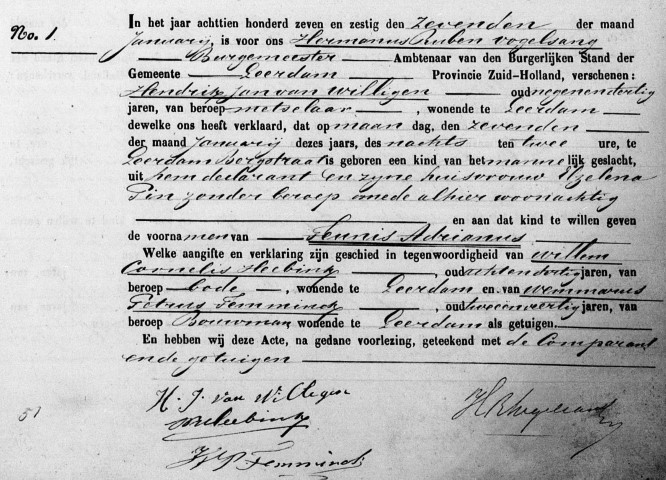 No. 1.
In het jaar achttien honderd zeven en zestig den zevenden der maand
Januarij, is voor ons Hermanus Ruben Vogelsang
Burgemeester Ambtenaar van den Burgerlijken Stand der
Gemeente Leerdam Provincie Zuid-Holland, verschenen:
Hendrik Jan van Willigen oud negenendertig
jaren, van beroep metselaar, wonende te Leerdam
dewelke ons heeft verklaard, dat op maan dag, den zevenden
der maand Januarij dezes jaars, des nachts ten twee ure, te
Leerdam Borgstraat is geboren een kind van het manne lijk geslacht,
uit hem declarant en zyne huisvrouw Elzelena
Pin zonder beroep mede alhier woonachtig
en aan dat kind te willen geven
de voornamen van Teunis Adrianus
Welke aangifte en verklaring zijn geschied in tegenwoordigheid van Willem
Cornelis Heebink, oud achtendertig jaren, van
beroep bode, wonende te Leerdam en van Wemmarus
Petrus Femminck, oud tweeenveertig jaren, van
beroep Bouwman wonende te Leerdam als getuigen.
En hebben wij deze Acte, na gedane voorlezing, geteekend met de Comparant
en de getuigen
H. J. van Willegen
WCHeebink
HRVogelsang
WP Femminck
51